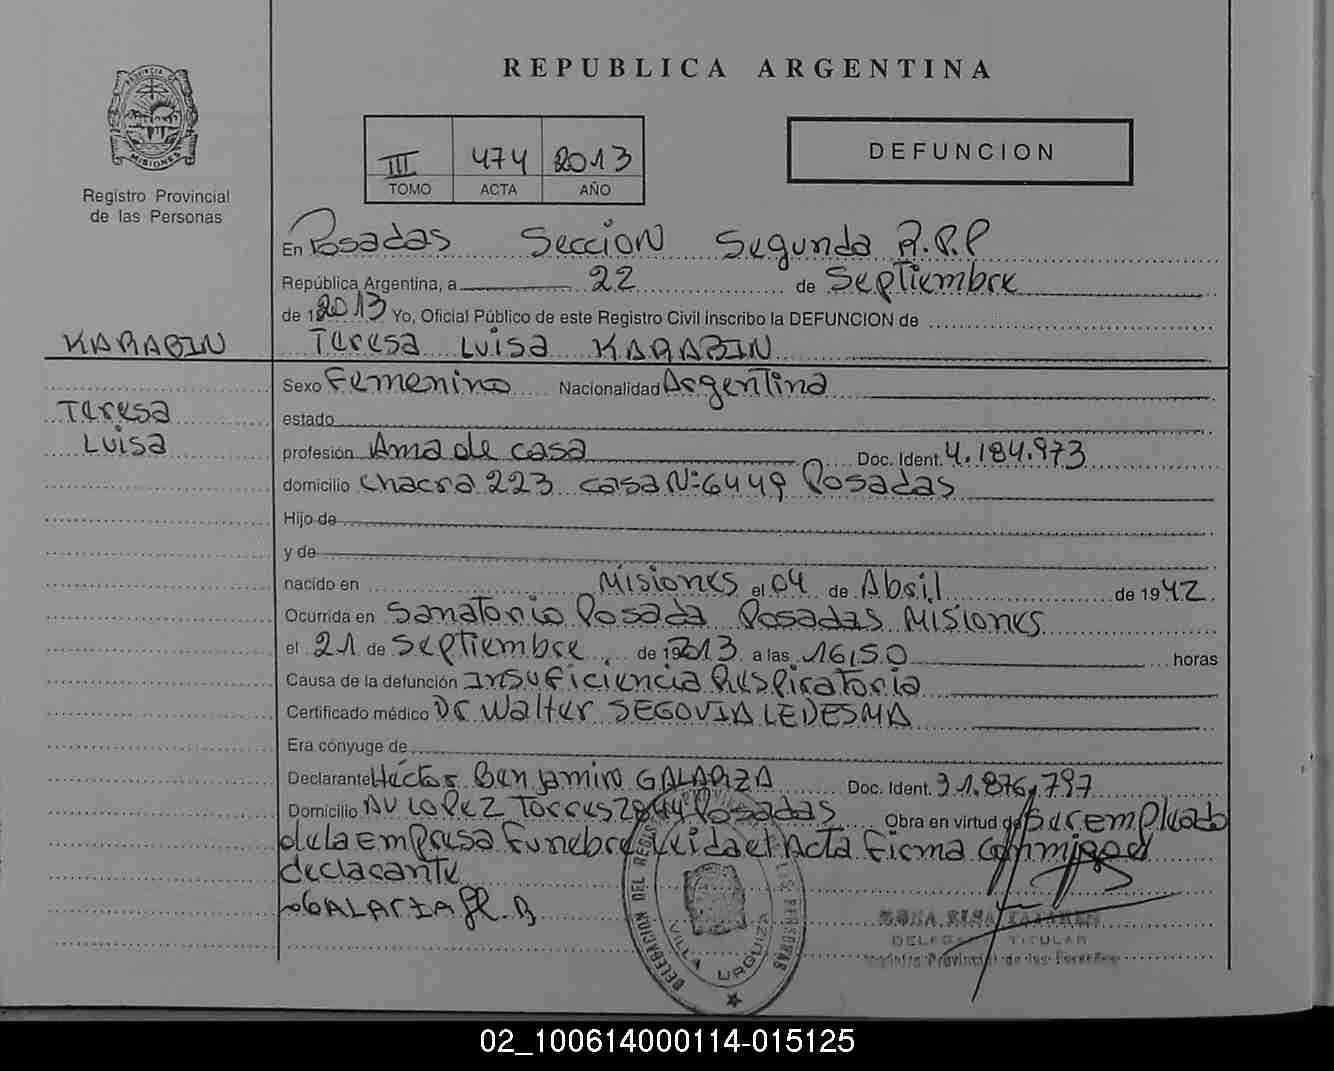 PROVINCIA DE
MISIONES
Registro Provincial
de las Personas
REPUBLICA ARGENTINA
III 474 2013
TOMO ACTA AÑO
DEFUNCION
En Posadas Seccion Segunda R.P.P
República Argentina, a 22 de Septiembre
de 12013 Yo, Oficial Público de este Registro Civil inscribo la DEFUNCION de
KARABIN Teresa Luisa KARABIN
Sexo Femenino Nacionalidad Argentina
Teresa
estado
Luisa
profesión Ama de casa Doc. Ident. 4.184.973
domicilio chacra 223 casa Nº 6449 Posadas
Hijo de
y de
nacido en Misiones el 04 de Abril de 1942
Ocurrida en Sanatorio Posada Posadas Misiones
el 21 de Septiembre de 192013 a las 16,50 horas
Causa de la defunción Insuficiencia Respiratoria
Certificado médico Dr Walter SEGOVIA LEDESMA
Era cónyuge de
Declarante Héctor Benjamin GALARZA Doc. Ident. 31.876.797
Domicilio AV LOPEZ TORRES 2844 Posadas Obra en virtud de ser empleado
de la Empresa Funebre Leida el Acta Firma conmigo el
declarante
GALARZA H. B
DELEGACION DEL REGISTRO LAS PERSONAS
VILLA URQUIZA
TITULAR
Registro Provincial de las Personas
02_100614000114-015125